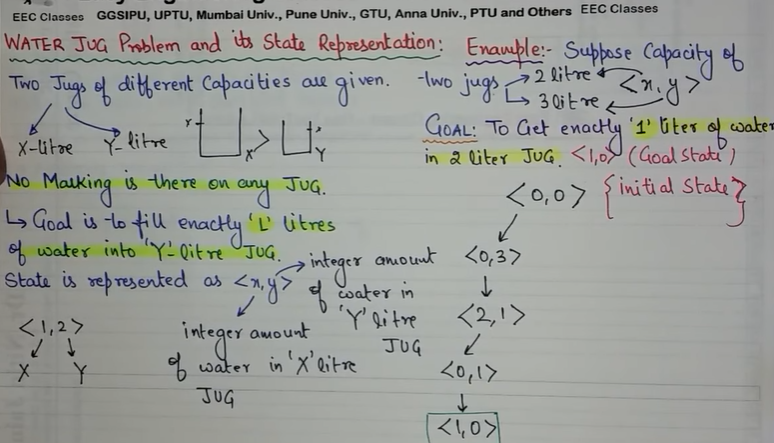 EEC Classes GGSIPU, UPTU, Mumbai Univ., Pune Univ., GTU, Anna Univ., PTU and Others EEC Classes
WATER JUG Problem and its State Representation:
Two Jugs of different Capacities are given.
X-litre Y-litre
x' > '
X Y
No Marking is there on any JUG.
↳ Goal is to fill exactly 'L' litres
of water into 'Y'-litre JUG.
State is represented as <x,y> → integer amount
of water in
'Y' litre
JUG
integer amount
of water in 'X' litre
JUG
<1,2>
X Y
Example:- Suppose Capacity of
two jugs → 2 litre <x,y>
↳ 3 litre
GOAL: To Get exactly '1' liter of water
in 2 liter JUG. <1,0> (Goal State)
<0,0> {initial State}
<0,3>
<2,1>
<0,1>
<1,0>